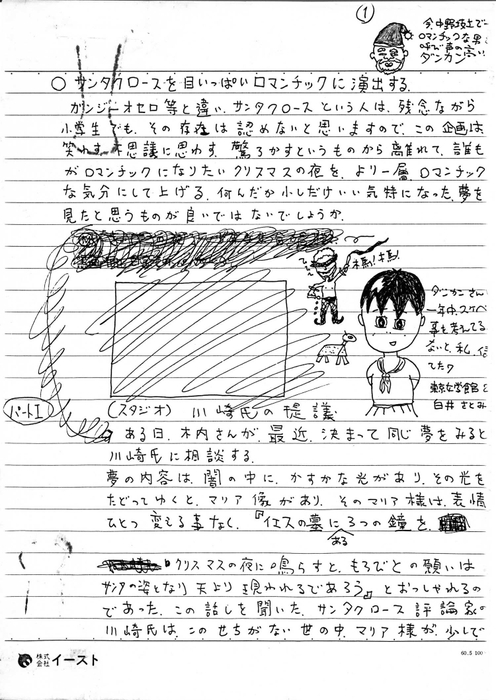 ①
今、中野坂上で
ロマンチックな男と
呼び声の高い
ダンカン
○ サンタクロースを目いっぱいロマンチックに演出する。
ガンジーオセロ等と違い、サンタクロースという人は、残念ながら
小学生でも、その存在は認めないと思いますので、この企画は
笑わす、不思議に思わす、驚ろかすというものから離れて、誰も
がロマンチックになりたいクリスマスの夜を、より一層、ロマンチック
な気分にして上げる。何んだか少しだけいい気持になった、夢を
見たと思うものが良いではないでしょうか。
ダンカンさん
一年中、スケベ
事を考えてる
ないと、私、信
てた?
東京女学館
白井さとみ
パートI
(スタジオ) 川崎氏の提議
ある日、木内さんが、最近、決まって同じ夢をみると
川崎氏に相談する。
夢の内容は、闇の中に、かすかな光があり、その光を
たどってゆくと、マリア像があり、そのマリア様は、表情
ひとつ変える事なく、『イエスの墓に3つの鐘を、
ある
クリスマスの夜に鳴らすと、もろびとの願いは
サンタの姿となり天より現われるであろう』とおっしゃれるの
であった。この話しを聞いた、サンタクロース評論家の
川崎氏は、このせちがない世の中、マリア様が、少しで
株式会社イースト
60.5 500